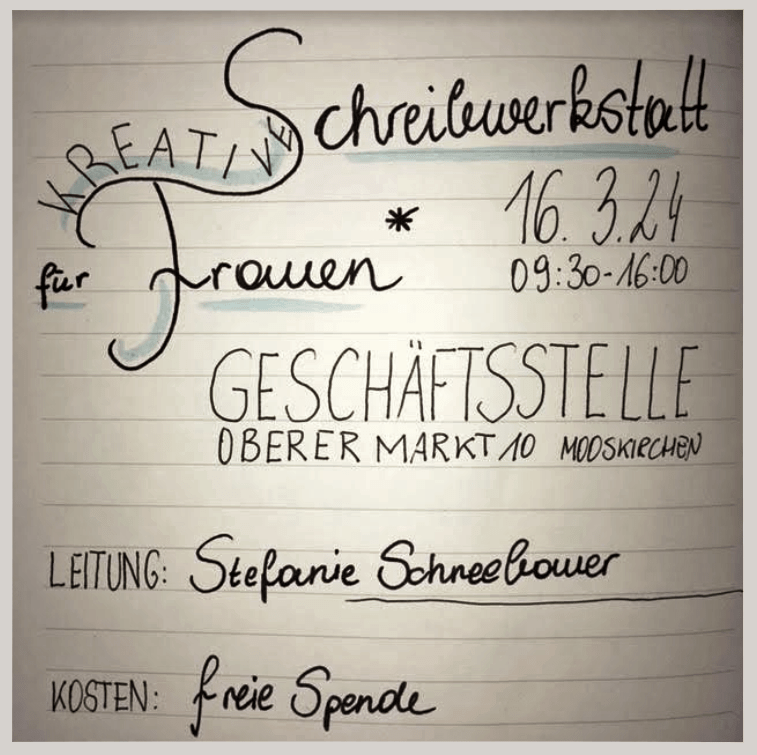 KREATIVE Schreibwerkstatt
für Frauen*
16.3.24
09:30-16:00
GESCHÄFTSSTELLE
OBERER MARKT 10 MOOSKIRCHEN
LEITUNG: Stefanie Schneebauer
KOSTEN: freie Spende